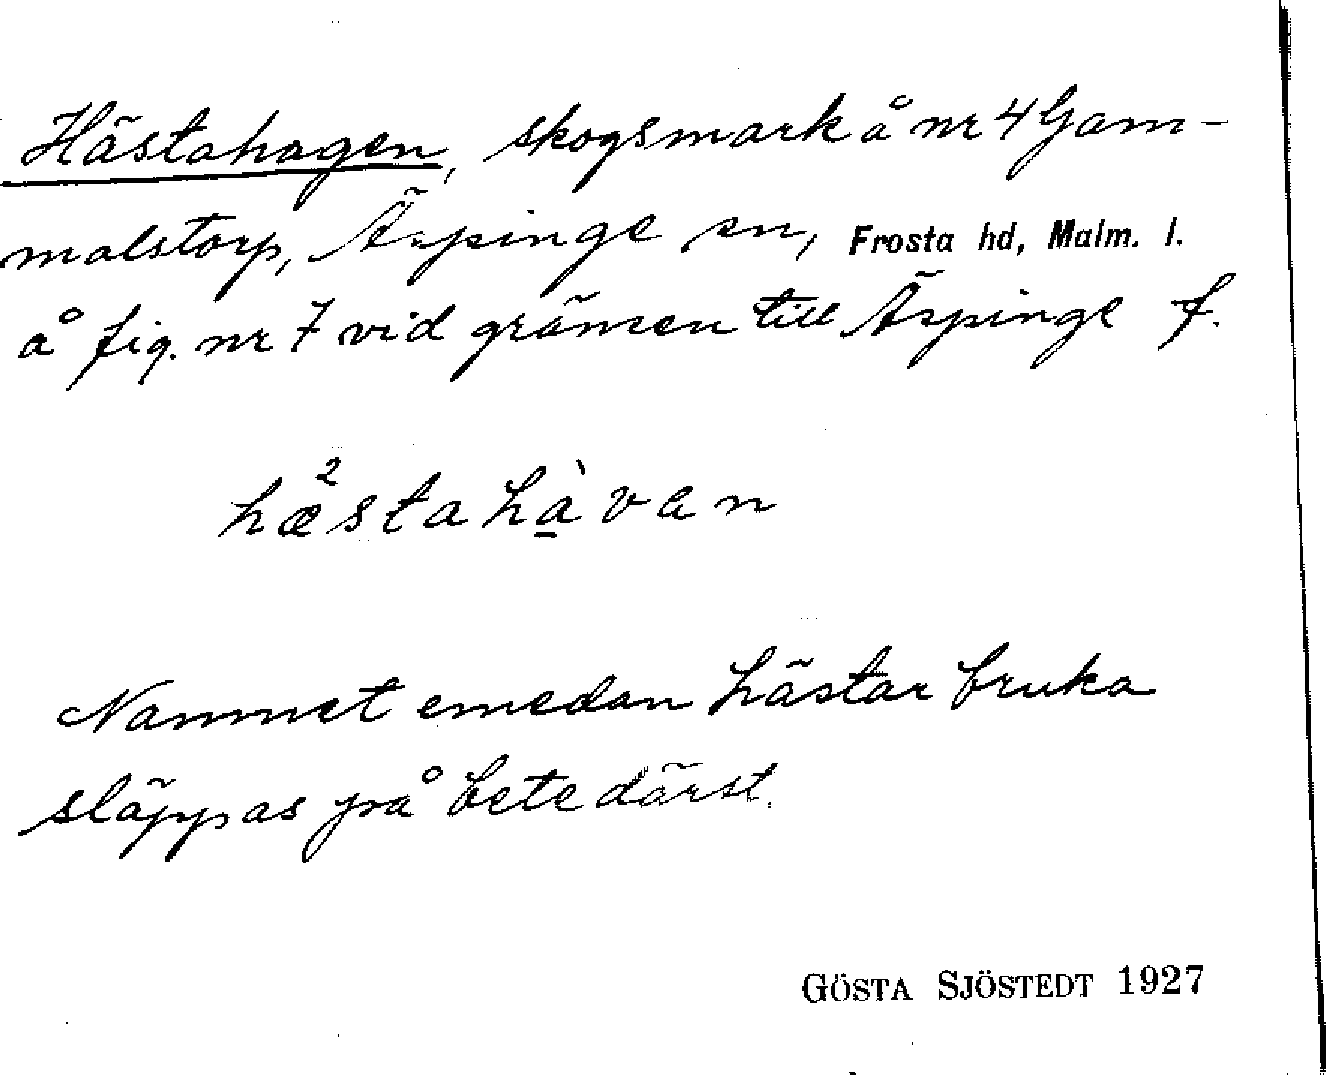 Hästahagen, skogsmark å nr 4 Gam-
malstorp, Äspinge sn, Frosta hd, Malm. l.
å fig. nr 7 vid gränsen till Äspinge f.
hæ²stahà̱van
Namnet emedan hästar bruka
släppas på bete därst.
GÖSTA SJÖSTEDT 1927